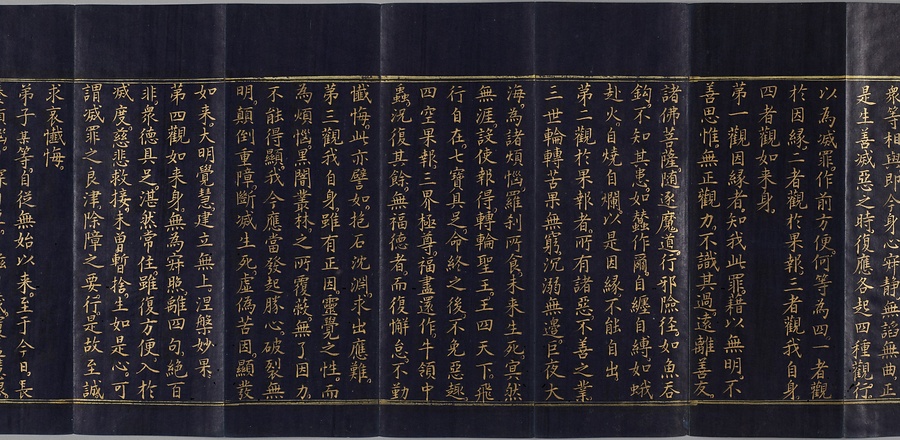 衆等相與即今身心寂靜無諂無曲正
是生善滅惡之時復應各起四種觀行
以為滅罪作前方便何等為四一者觀
於因緣二者觀於果報三者觀我自身
四者觀如來身
第一觀因緣者知我此罪藉以無明不
善思惟無正觀力不識其過遠離善友
諸佛菩薩隨逐魔道行邪險徑如魚吞
鉤不知其患如蠶作繭自纏自縛如蛾
赴火自燒自爛以是因緣不能自出
第二觀於果報者所有諸惡不善之業
三世輪轉苦果無窮沉溺無邊巨夜大
海為諸煩惱羅剎所食未來生死冥然
無涯設使報得轉輪聖王王四天下飛
行自在七寶具足命終之後不免惡趣
四空果報三界極尊福盡還作牛領中
蟲況復其餘無福德者而復懈怠不勤
懺悔此亦譬如抱石沈淵求出應難
第三觀我自身雖有正因靈覺之性而
為煩惱黑闇叢林之所覆蔽無了因力
不能得顯我今應當發起勝心破裂無
明顛倒重障斷滅生死虛偽苦因顯發
如來大明覺慧建立無上涅槃妙果
第四觀如來身無為寂照離四句絕百
非衆德具足湛然常住雖復方便入於
滅度慈悲救接未曾暫捨生如是心可
謂滅罪之良津除障之要行是故至誠
求哀懺悔
弟子某等自從無始以來至于今日長